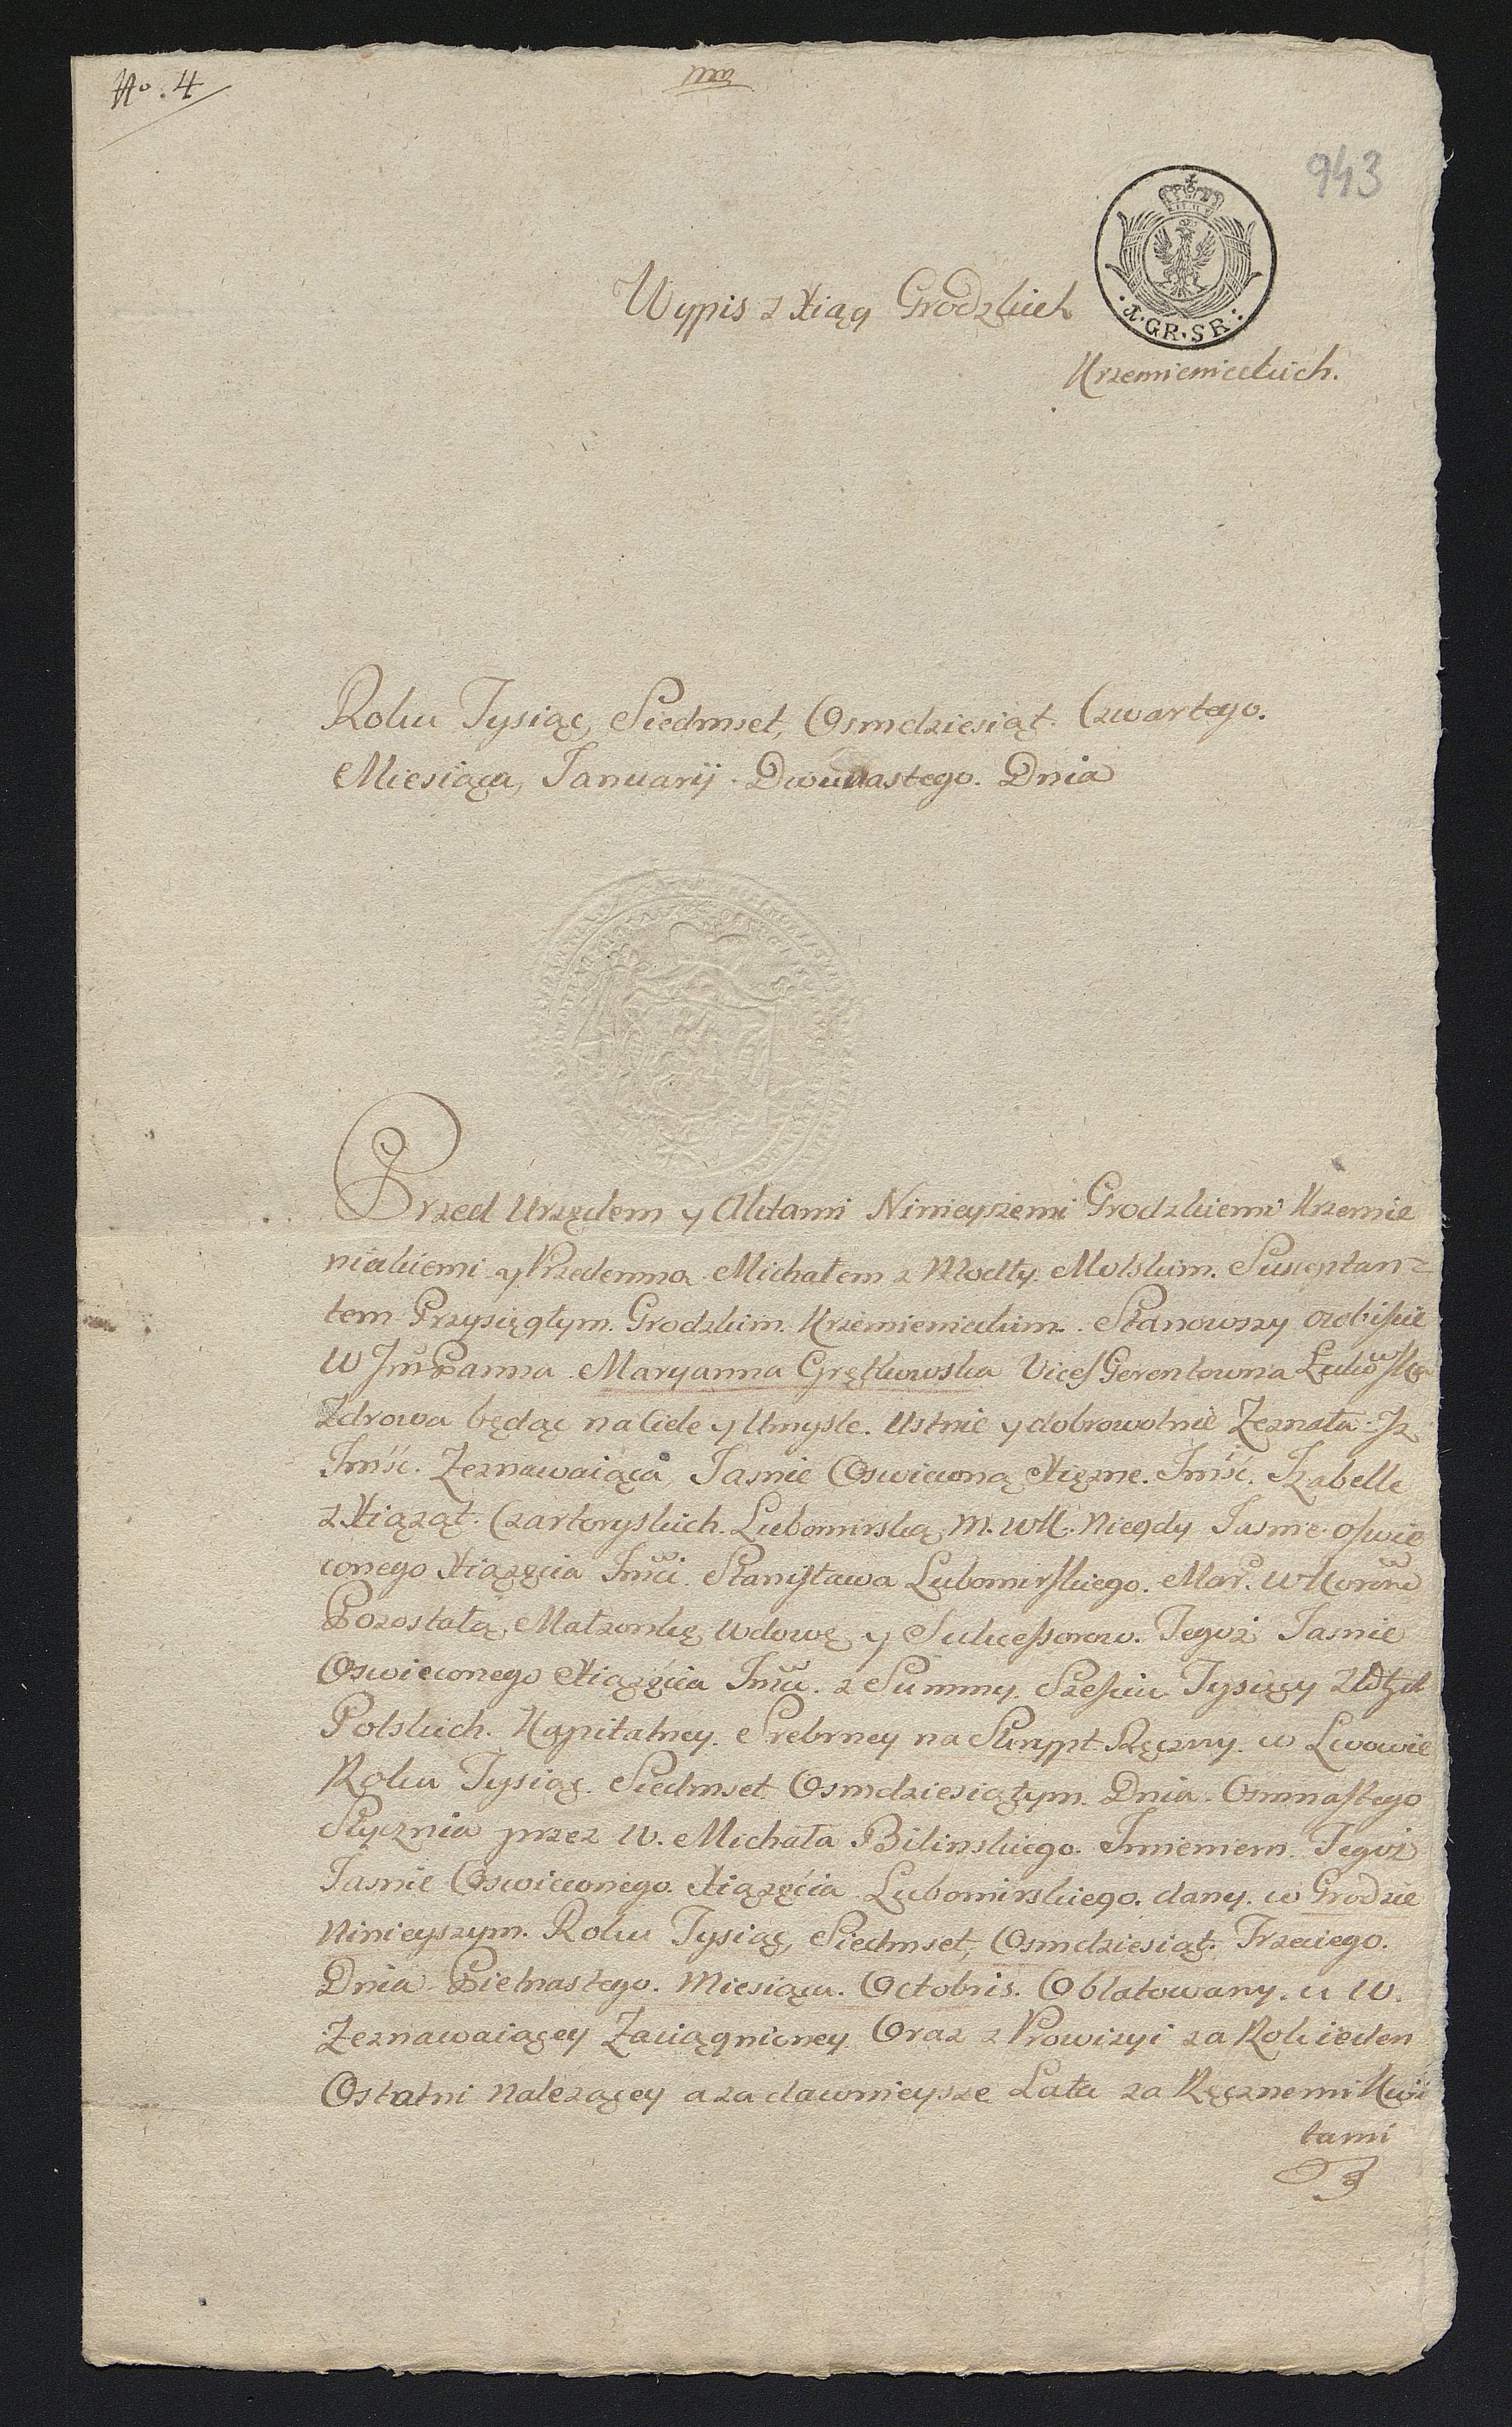 No. 4
943
Wypis z Xiąg Grodzkich
I. GR. SR:
Krzemienieckich.
Roku Tysiąc, Siedmset, Osmdziesiąt. Czwartego.
Miesiąca, Januarij Dwunastego. Dnia
Przed Urzędem y Aktami Ninieyszemi Grodzkiemi Krzemie
nieckiemi y Przedemną Michałem z Modły Molskim. Susceptan=
tem Przysięgłym. Grodzkim. Krzemienieckim. Stanowszy osobiście
W Jm̃ Panna Maryanna Grętkowska Vices Gerentowna
Zdrowa będąc na Ciele y Umysle. Ustnie y dobrowolnie Zeznała Jz
Jmść. Zeznawaiąca, Jasnie Oswieconą Xięzne. Jmść. Jzabelle
z Xiąząt. Czartoryskich. Lubomirską M. WK. Niegdy Jasnie oswie
conego Xiązęcia Jmci. Stanisława Lubomirskiego. Mar. W Koron̄
Pozostałą, Małzonkę, Wdowę, y Sukcessorow. Tegoż Jasnie
Oswieconego Xiązęcia Jmci. z Summy. Szesciu Tysięcy Złtych
Polskich. Kapitalney. Srebrney na Skrypt Ręczny. w Lwowie
Roku Tysiąc. Siedmset Osmdziesiątym. Dnia. Osmnastego
Stycznia przez W. Michała Bilinskiego. Jmieniem. Tegoż
Jasnie Oswieconego. Xiązęcia Lubomirskiego. dany. w Grodzie
Ninieyszym. Roku Tysiąc, Siedmset, Osmdziesiąt. Trzeciego.
Dnia Pietnastego. Miesiąca. Octobris. Oblatowany. u W.
Zeznawaiącey Zaciągnioney Oraz z Prowizyi za Rok ieden
Ostatni nalezącey a za dawnieysze Lata za Ręcznemi Kwi
tami